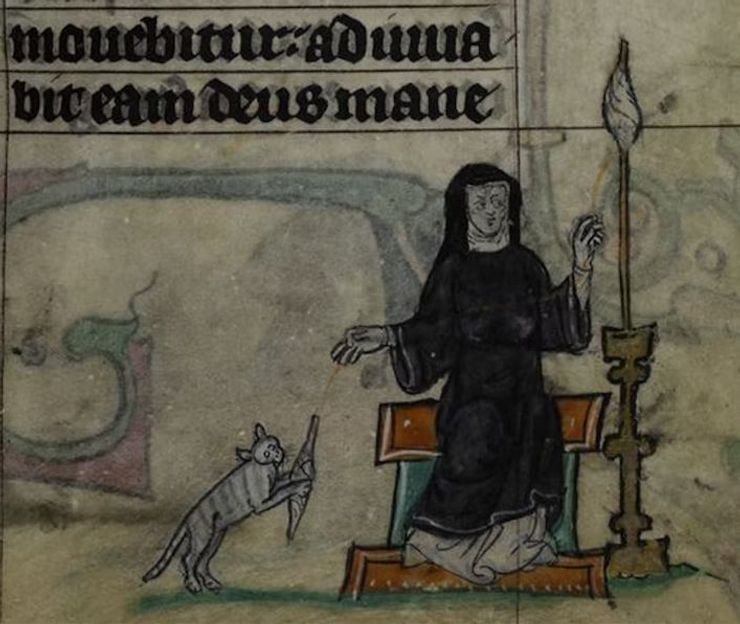 mouebitur: adiuua
bit eam deus mane